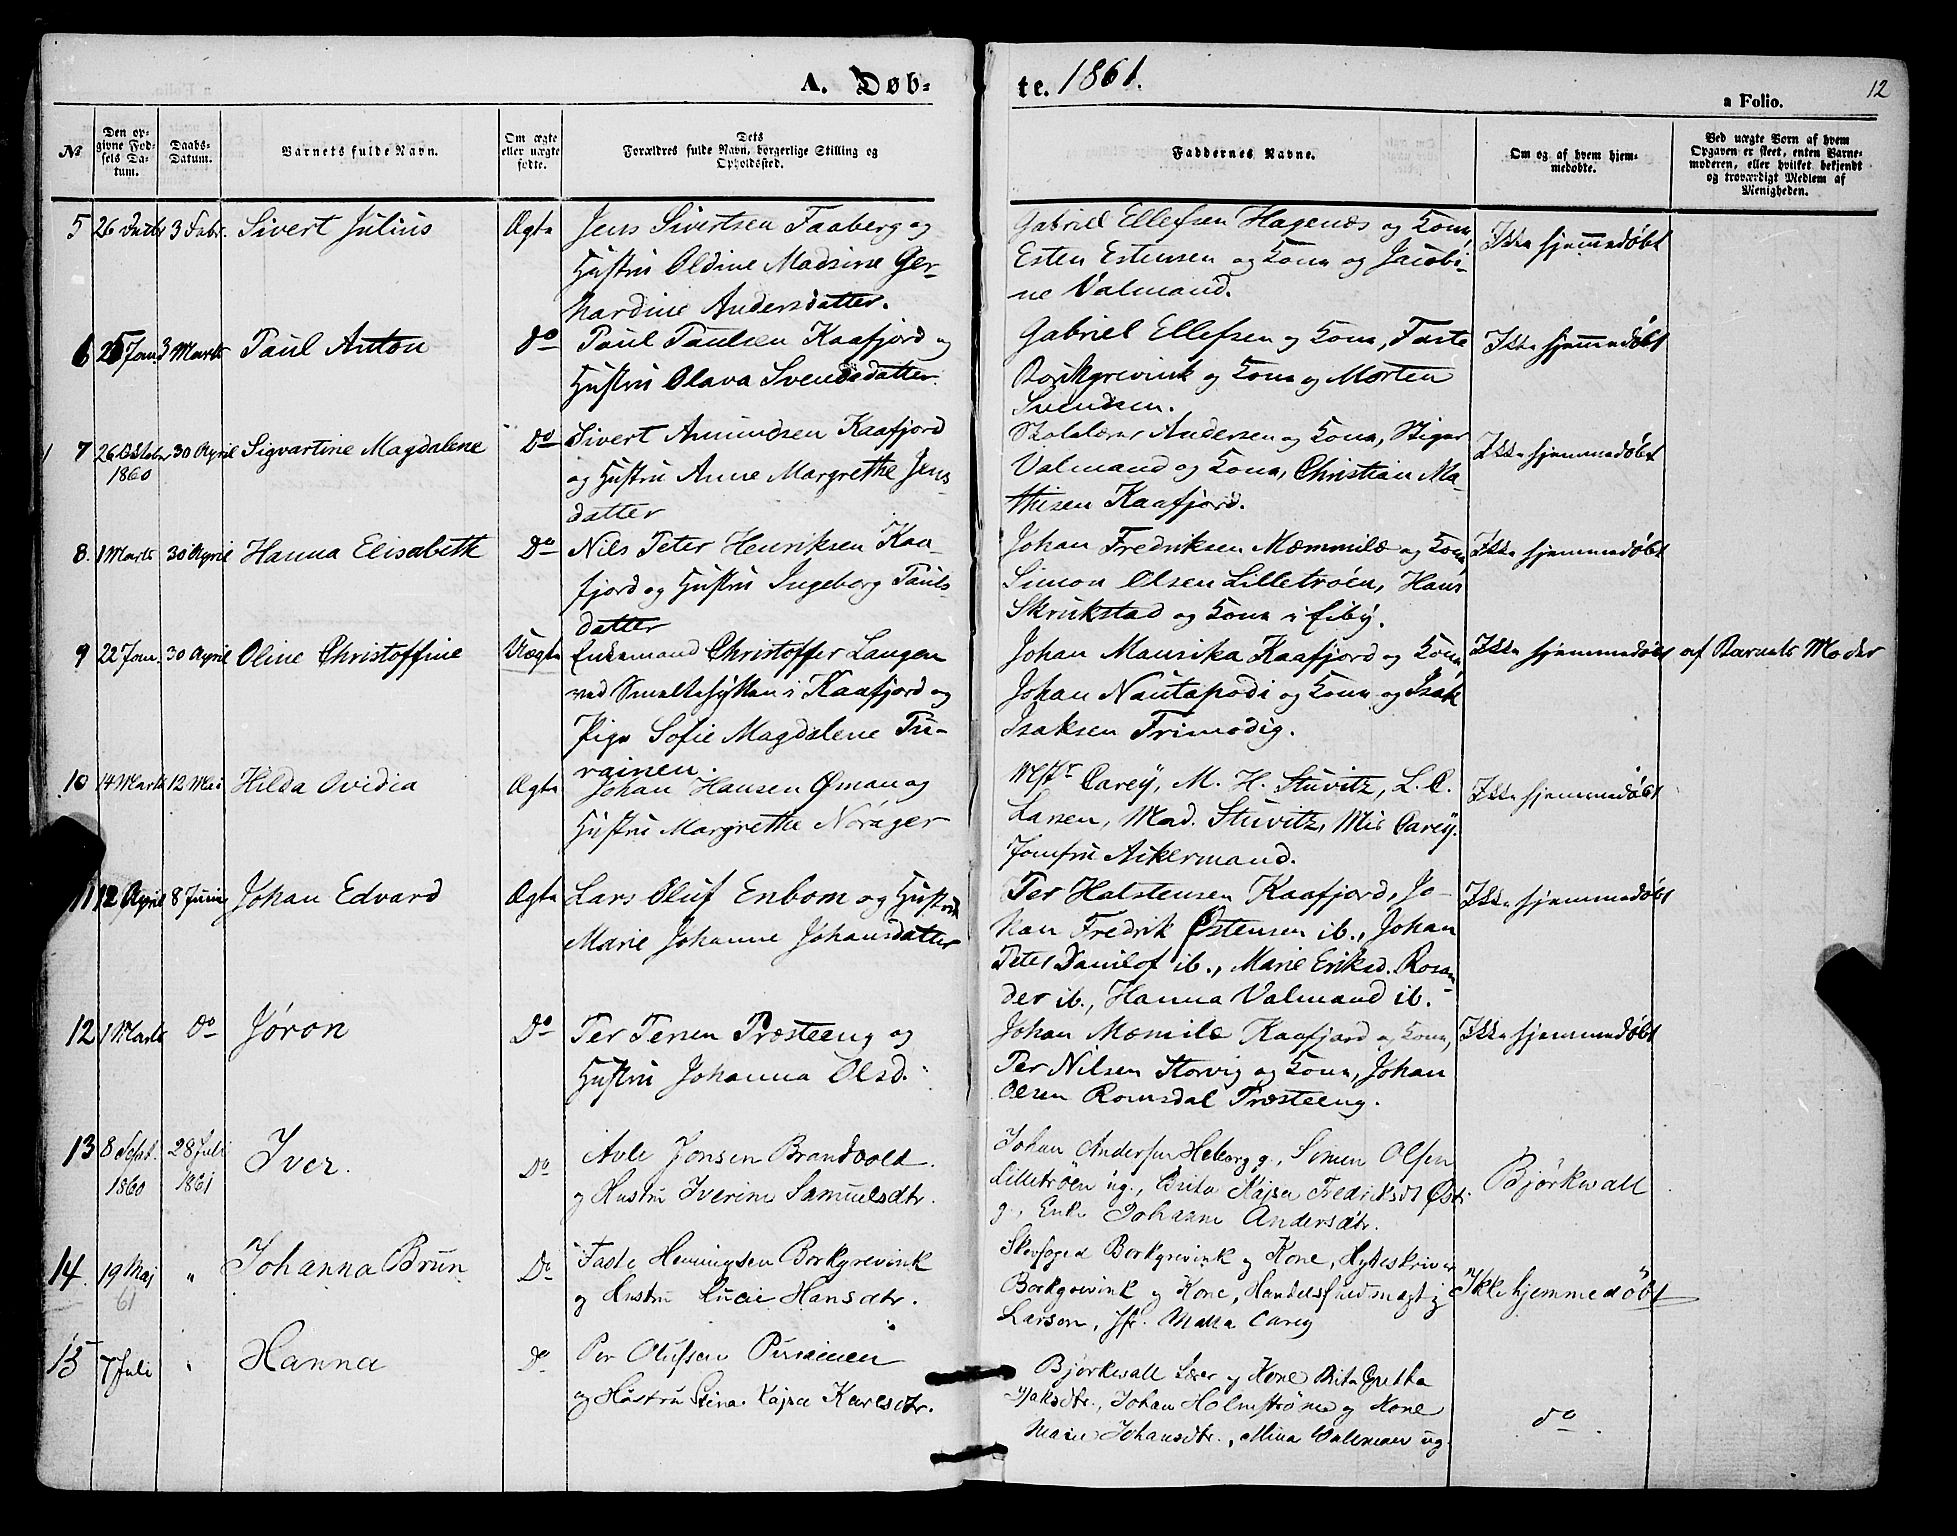 A. Døb-
te. 1861.
12
a Folio.
No
Den op-
givne Fød-
sels Da-
tum.
Daabs-
Datum.
Barnets fulde Navn.
Om ægte
eller uægte
fødte.
Dets
Forældres fulde Navn, borgerlige Stilling og
Opholdssted.
Faddernes Navne.
Om og af hvem hjem-
medøbte.
Ved uægte Børn af hvem
Opgaven er skeet, enten Barne-
moderen, eller hvilket bekjendt
og troværdigt Medlem af
Menigheden.
5 3 Febr. Sivert Julius Ægte
Jens Sivertsen Faaberg og
Hustru Oldine Madsine Ger-
hardine Andersdatter.
Gabriel Ellefsen Hagenæs og Kone,
Esten Estensen og Kone og Jacobi-
ne Valmand.
Ikke hjemmedøbt
6 25 Jan 3 Marts Paul Anton Do
Paul Paulsen Kaafjord og
Hustru Olava Svendsdatter.
Gabriel Ellefsen og Kone, Faste
Borkgrevink og Kone og Morten
Svendsen.
Ikke hjemmedøbt
7 26 Octobr 1860 30 April Sigvartine Magdalene Do
Sivert Amundsen Kaafjord
og Hustru Anne Margrethe Jens-
datter
Skolelærer Andersen og Kone, Stiger
Valmand og Kone, Christian Ma-
thisen Kaafjord.
Ikke hjemmedøbt
8. 1 Marts 30 April Hanna Elisabeth Do
Nils Peter Henriksen Kaa-
fjord og Hustru Ingeborg Pauls-
datter
Johan Fredriksen Mæmmilæ og Kone,
Simon Olsen Lilletrøen, Hans
Skrukstad og Kone i Eiby.
Ikke hjemmedøbt
9 22 Jan. 30 April Oline Christoffine Uægte
Enkemand Christoffer Langen
ved Smeltehytten i Kaafjord og
Pige Sofie Magdalene Pu-
rainen.
Johan Mausika Kaafjord og Kone,
Johan Nautapodi og Kone og Isak
Isaksen Frimodig.
Ikke hjemmedøbt
af Barnets Moder
10 14 Marts 12 Mai Hilda Ovidia Ægte
Johan Hansen Øman og
Hustru Margrethe Norager
Mstr Carey, M. H. Stuvitz, L. C.
Larsen, Mad. Stuvitz, Mis Carey.
Jomfru Akermand.
Ikke hjemmedøbt
11 12 April 8 Juni Johan Edvard Ægte
Lars Oluf Enbom og Hustru
Marie Johanne Johansdatter
Per Halstensen Kaafjord, Jo-
han Fredrik Østensen ib., Johan
Peter Danilof ib., Marie Eriksd. Rosan-
der ib., Hanna Valmand ib.
Ikke hjemmedøbt
12 1 Marts Do Jøron Do
Per Persen Præsteeng og
Hustru Johanna Olsd.
Johan Mæmilæ Kaafjord og Kone,
Per Nilsen Storvig og Kone, Johan
Olsen Romsdal Præsteeng.
Ikke hjemmedøbt
13 8 Sept. 1860 28 Juli 1861 Iver. Do
Avle Jonsen Brandvold.
og Hustru Iverine Samuelsdtr.
Johan Andersen Heborg g., Simen Olsen
Lilletrøen ug., Brita Kajsa Fredriksdt
g., Enke Johanne Andersdtr.
Bjørkwall
14. 19 Maj 61 " Johanna Brun Do
Faste Henningsen Borkgrevink
og Hustru Lucie Hansdtr.
Skovfoged Borkgrevink og Kone, Hytteskriver
Borkgrevink og Kone, Handelsfuldmægtig
Larson, Jfr. Carey
Ikke hjemmedøbt
15 7 Juli " Hanna Do
Per Olufsen Purainen
og Hustru Stina Kajsa Karlsdtr.
Bjørkwall Lærer og Kone Brita Gretha
Isaksdtr., Johan Holmstrøm og Kone
Maria Johansdtr., Mina Valeman ug.
do